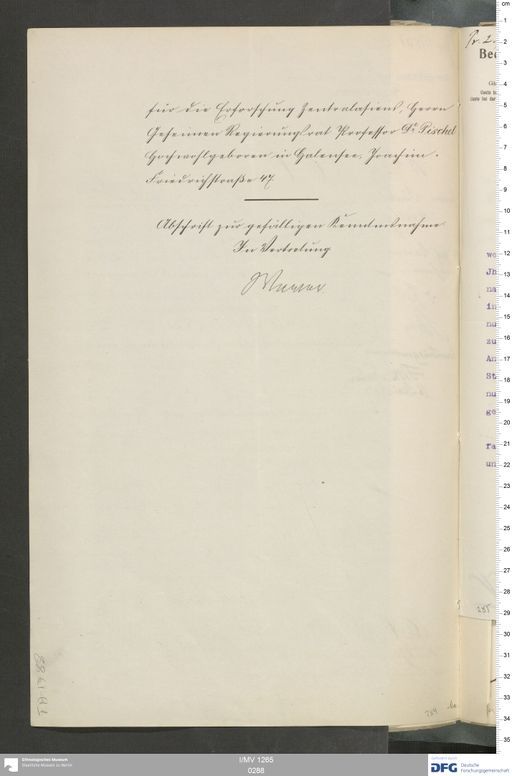 für die Erforschung Zentralasiens, Herrn
Geheimen Regierungsrat Professor Dr. Pischel
Hochwohlgeboren in Halensee, Joachim-
Friedrichstraße 47.
Abschrift zur gefälligen Kenntnisnahme
In Vertretung
Pr. 2
Bee
wo
Jh
na
in
nu
zu
An
St
nu
ge
fa
un
255
254
Ethnologisches Museum
Staatliche Museen zu Berlin
I/MV 1265
0288
DFG Deutsche
Forschungsgemeinschaft